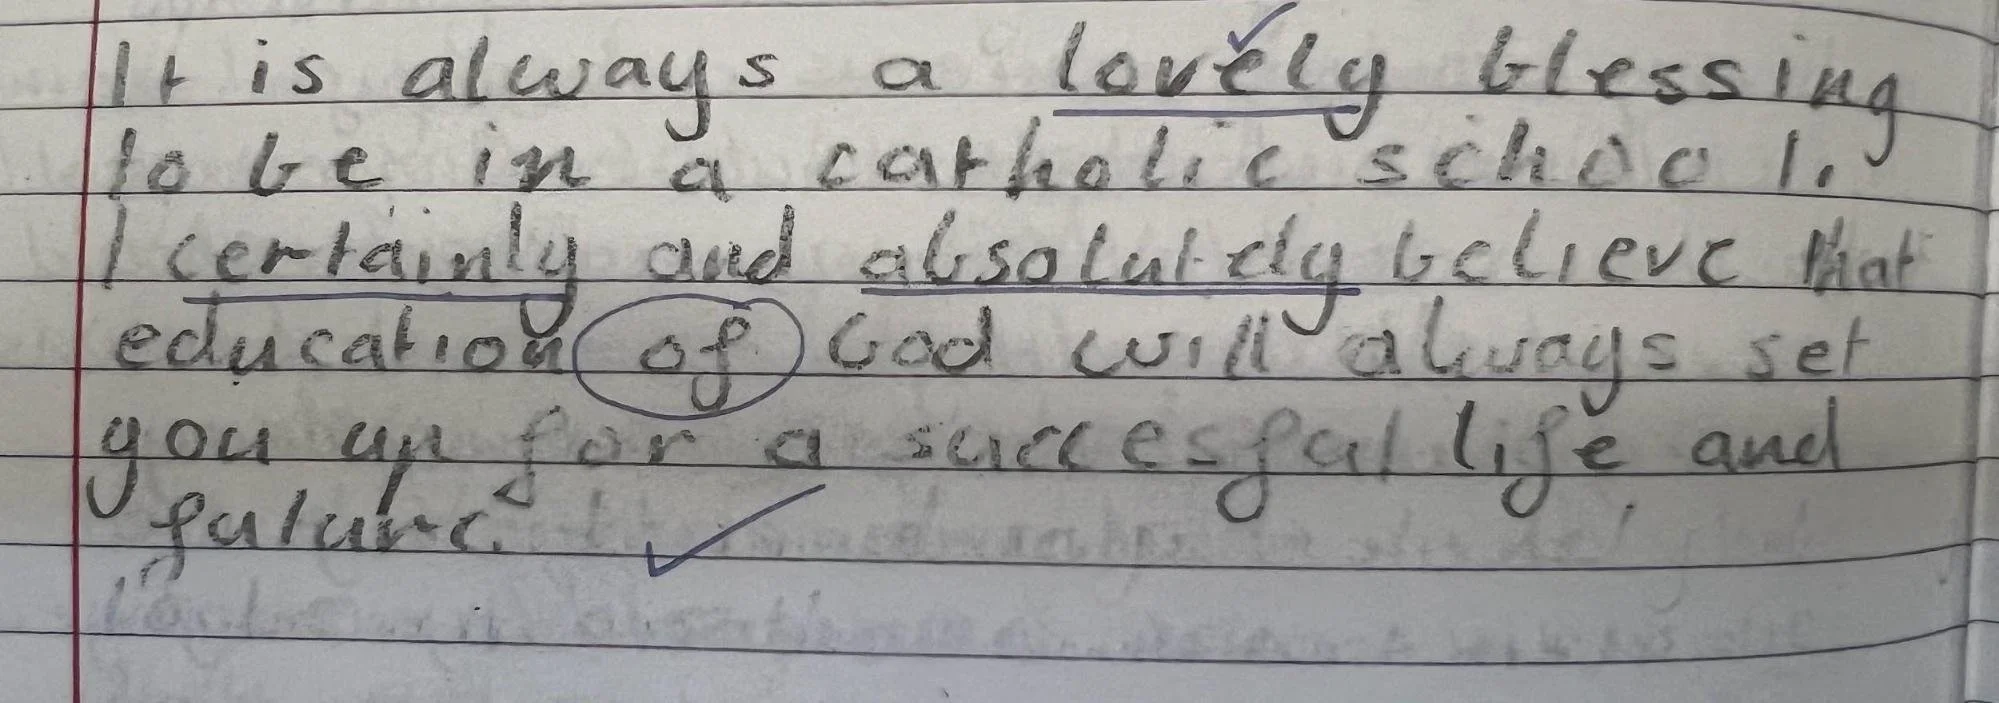 It is always a lovely blessing
to be in a catholic school.
I certainly and absolutely believe that
education of God will always set
you up for a succesful life and
future.